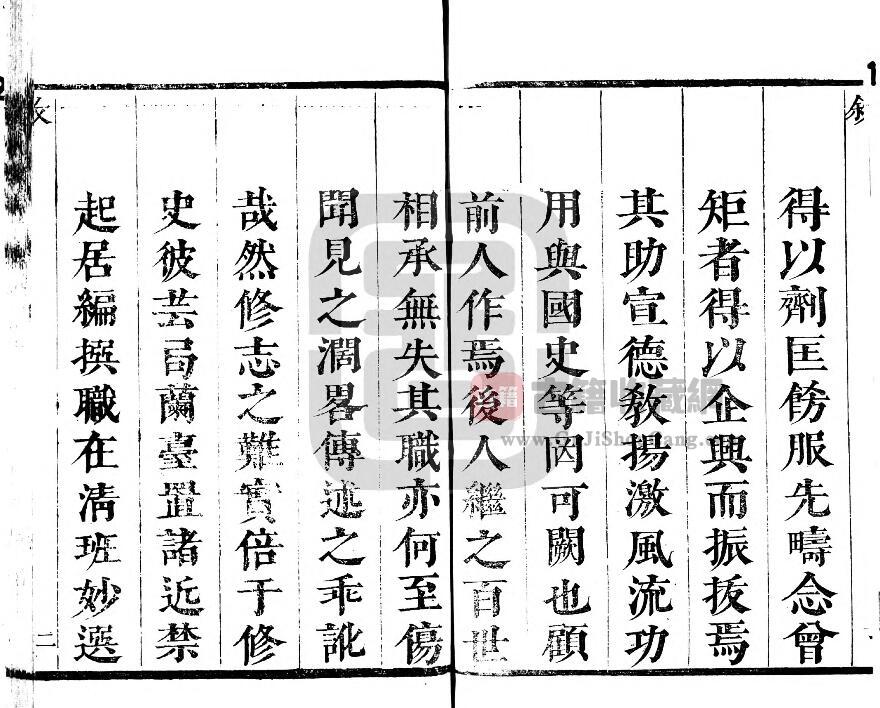 得以劑匡餝服先疇念曾
矩者得以企興而振拔焉
其助宣德敎揚激風流功
用與國史等罔可闕也顧
前人作焉後人繼之百世
相承無失其職亦何至傷
聞見之濶畧傳述之乖訛
哉然修志之難實倍于修
史彼芸局蘭臺置諸近禁
起居編撰職在清班妙選
二